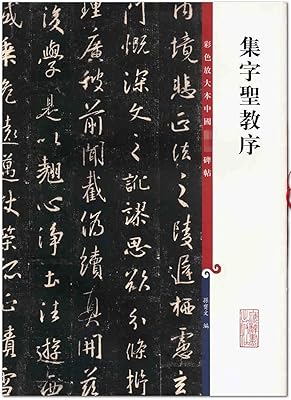 集字聖教序
彩色放大本中國 碑帖
孫寶文 編
内境悲正法之陵遲栖慮玄
門慨深文之訛謬思欲分條析
理廣彼前聞截偽續真開茲
後學是以翹心淨土法遊西
域乘危遠邁杖策孤征積雪